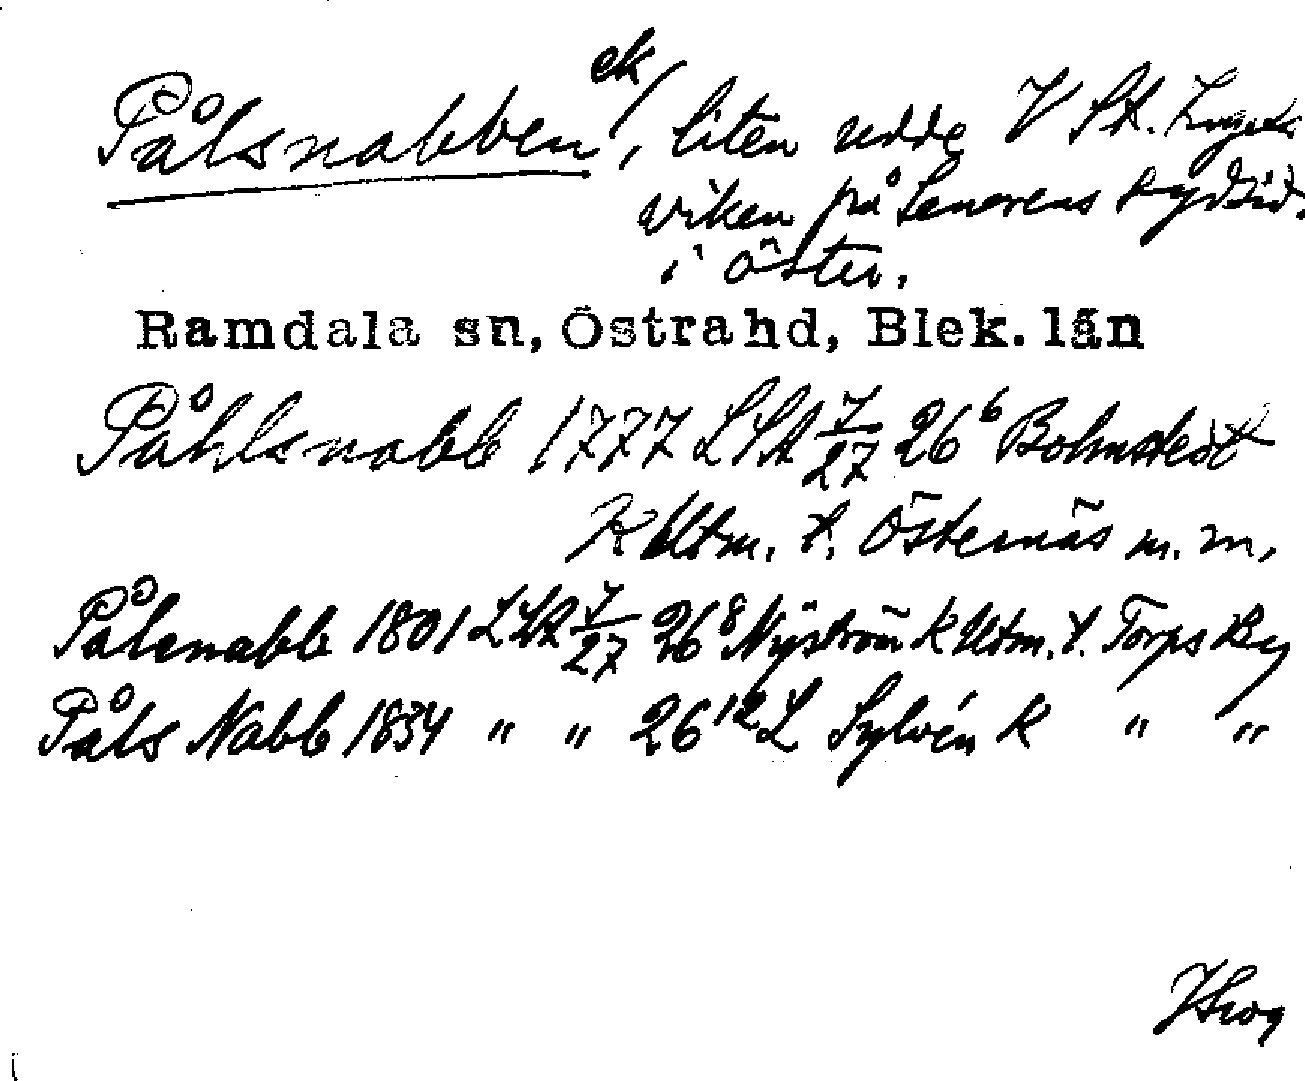 Pålsnabben ek/, liten udde V St.
viken på Senorens sydsid.
i öster.
Ramdala sn, Östrahd, Blek. län
Påhlsnabb 1777 LSA 7/27 26⁶ Bohnstedt
K Utm. t. Östernäs m. m.
Pålsnabb 1801 LSA 7/27 26⁸ Nyström K Utm. t. Torps By
Påls Nabb 1834 " " 26¹² L Sylvén K " "